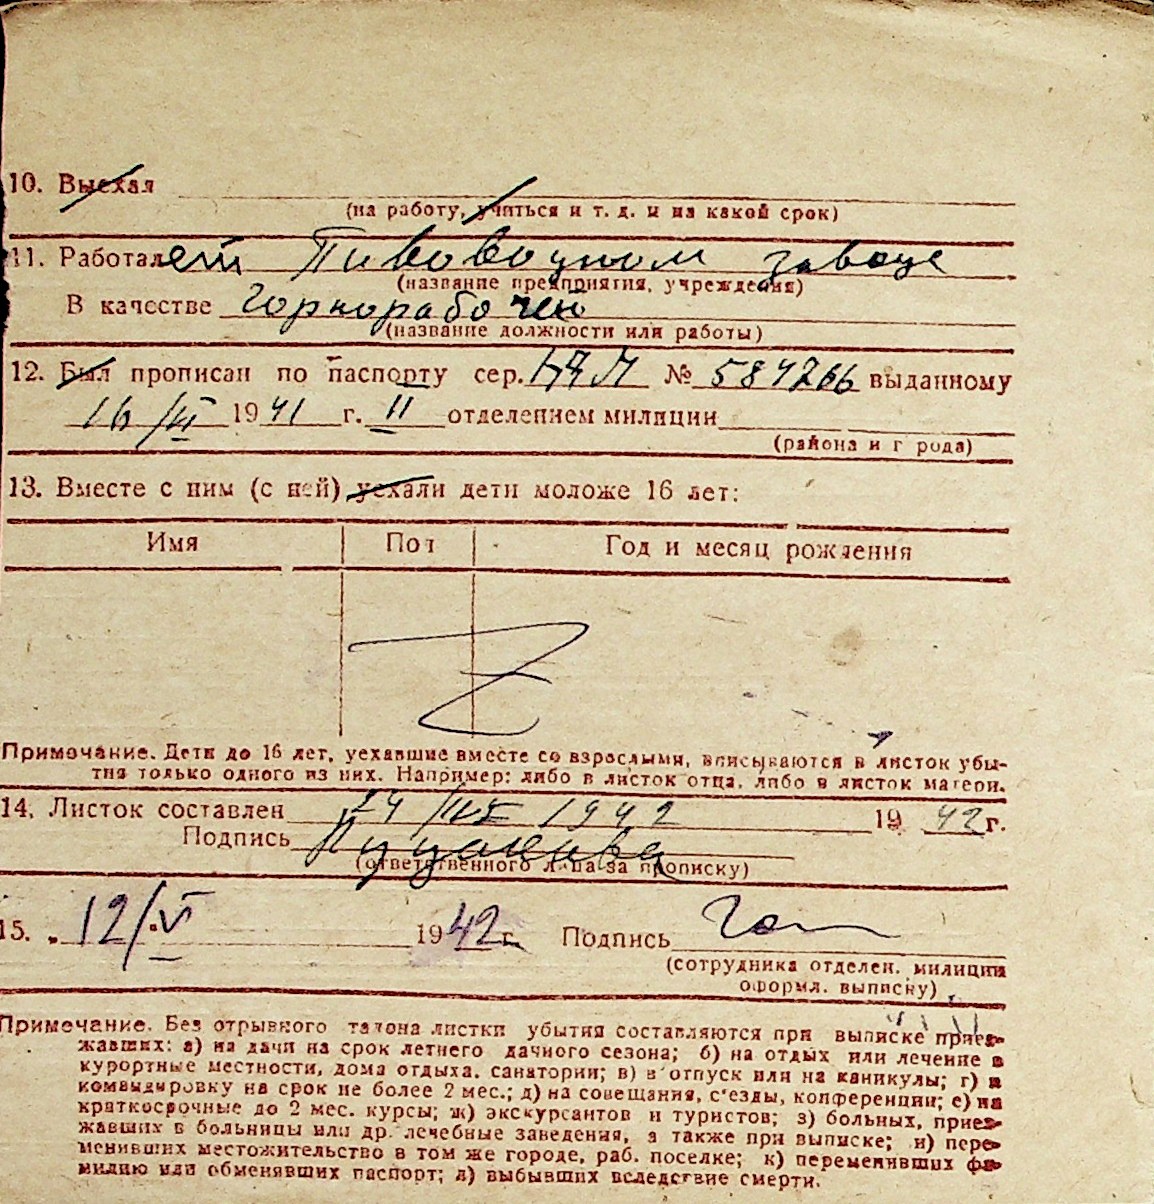 10. Выехал
(на работу, учиться и т. д. и на какой срок)
11. Работает Пивоваренном заводе
(название предприятия, учреждения)
В качестве чернорабочей
(название должности или работы)
12. Был прописан по паспорту сер. № 584266 выданному
16/VI 1941 г. II отделением милиции
(района и г рода)
13. Вместе с ним (с ней) уехали дети моложе 16 лет:
Имя Пол Год и месяц рождения
Z
Примечание. Дети до 16 лет, уехавшие вместе со взрослыми, вписываются в листок убы-
тия только одного из них. Например: либо в листок отца, либо в листок матери.
14. Листок составлен 1942 19 42 г.
Подпись
(ответственного лица за прописку)
15. 12/VI 1942 г. Подпись
(сотрудника отделен. милиции
оформл. выписку)
Примечание. Без отрывного талона листки убытия составляются при выписке приез-
жавших: а) на дачи на срок летнего дачного сезона; б) на отдых или лечение в
курортные местности, дома отдыха, санатории; в) в отпуск или на каникулы; г) в
командировку на срок не более 2 мес.; д) на совещания, с'езды, конференции; е) на
краткосрочные до 2 мес. курсы; ж) экскурсантов и туристов; з) больных, приез-
жавших в больницы или др. лечебные заведения, а также при выписке; и) пере-
менивших местожительство в том же городе, раб. поселке; к) переменивших фа-
милию или обменявших паспорт; л) выбывших вследствие смерти.